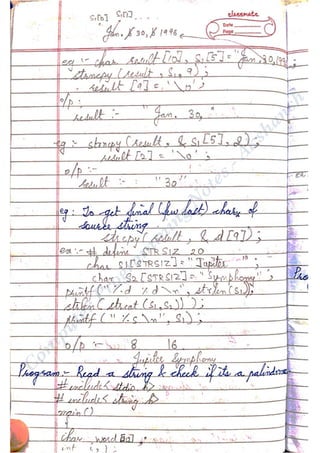 S₁[0] S₁[5]
classmate
Date
Page
Jan. 30, 1996
eg :- char result[10], S₁[5]="Jan. 30, 199
strncpy (result, S₁, 9);
result [9] = '\0';
o/p :
result :- "Jan. 30,"
eg :- strncpy (result, & S₁[5], 2);
result[2] = '\0';
o/p :-
result :- "30"
eg : To get final (few last) chars of
source string
strcpy (result, & d[9]);
ex :- # define STRSIZ 20
char S1[STRSIZ] = "Jupiter ";
char S2[STRSIZ] = "Symphony";
printf ("%d %d \n", strlen(S₁),
strlen (strcat (S₁, S₂)));
printf ("%s\n", S₁);
o/p :- 8 16
Jupiter Symphony
Program :- Read a string & check if its a palindrome
# include < stdio.h>
# include < string.h>
main()
{
char word[50],
int